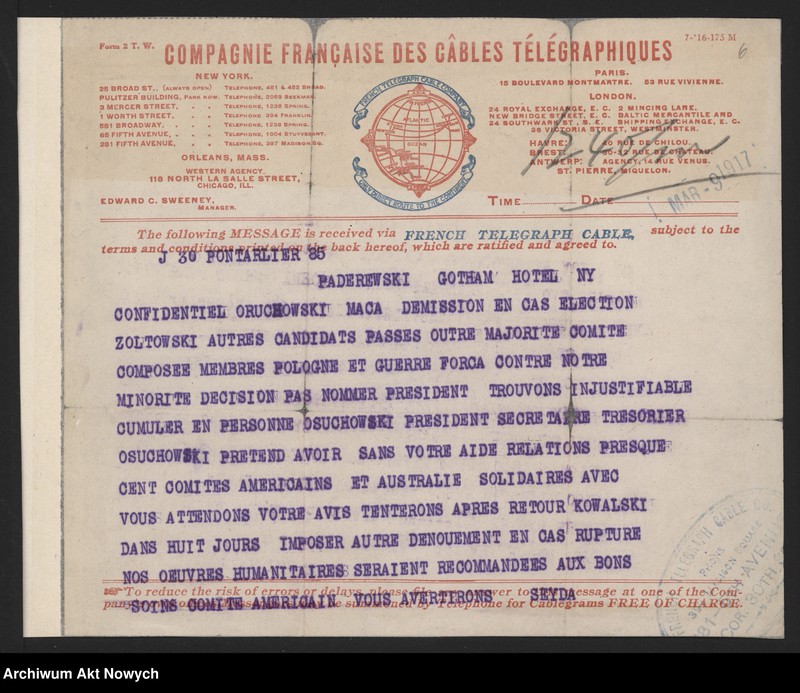 Form 2 T. W.
7-'16-175 M
6
COMPAGNIE FRANÇAISE DES CÂBLES TÉLÉGRAPHIQUES
NEW YORK.
PULITZER BUILDING, PARK ROW. TELEPHONE, 2069 BEEKMAN.
3 MERCER STREET, TELEPHONE, 1236 SPRING.
1 WORTH STREET, TELEPHONE, 394 FRANKLIN.
561 BROADWAY, TELEPHONE, 1236 SPRING.
65 FIFTH AVENUE, TELEPHONE, 1004 STUYVESANT.
281 FIFTH AVENUE, TELEPHONE, 397 MADISON SQ.
ORLEANS, MASS.
WESTERN AGENCY
118 NORTH LA SALLE STREET,
CHICAGO, ILL.
EDWARD C. SWEENEY,
MANAGER.
FRENCH TELEGRAPH CABLE COMPANY
ATLANTIC
OCEAN
ONLY DIRECT ROUTE TO THE CONTINENT
PARIS.
15 BOULEVARD MONTMARTRE. 53 RUE VIVIENNE.
LONDON.
24 ROYAL EXCHANGE, E. C. 2 MINCING LANE,
NEW BRIDGE STREET, E. C. BALTIC MERCANTILE AND
24 SOUTHWARK ST., S. E. SHIPPING EXCHANGE, E. C.
36 VICTORIA STREET, WESTMINSTER.
HAVRE: 40 RUE DE CHILOU.
BREST: RUE DE CHATEAU.
ANTWERP: AGENCY, 14 RUE VENUS.
ST. PIERRE, MIQUELON.
TIME DATE
MAR -9 1917
The following MESSAGE is received via FRENCH TELEGRAPH CABLE, subject to the
terms and conditions printed on the back hereof, which are ratified and agreed to.
J 30 PONTARLIER 85
PADEREWSKI GOTHAM HOTEL NY
CONFIDENTIEL ORUCHOWSKI MACA DEMISSION EN CAS ELECTION
ZOLTOWSKI AUTRES CANDIDATS PASSES OUTRE MAJORITE COMITE
COMPOSEE MEMBRES POLOGNE ET GUERRE FORCA CONTRE NOTRE
MINORITE DECISION PAS NOMMER PRESIDENT TROUVONS INJUSTIFIABLE
CUMULER EN PERSONNE OSUCHOWSKI PRESIDENT SECRETAIRE TRESORIER
OSUCHOWSKI PRETEND AVOIR SANS VOTRE AIDE RELATIONS PRESQUE
CENT COMITES AMERICAINS ET AUSTRALIE SOLIDAIRES AVEC
VOUS ATTENDONS VOTRE AVIS TENTERONS APRES RETOUR KOWALSKI
DANS HUIT JOURS IMPOSER AUTRE DENOUEMENT EN CAS RUPTURE
NOS OEUVRES HUMANITAIRES SERAIENT RECOMMANDEES AUX BONS
SOINS COMITE AMERICAIN VOUS AVERTIRONS SEYDA
To reduce the risk of errors or delays, please to message at one of the Com-
by Telephone for Cablegrams FREE OF CHARGE.
Archiwum Akt Nowych